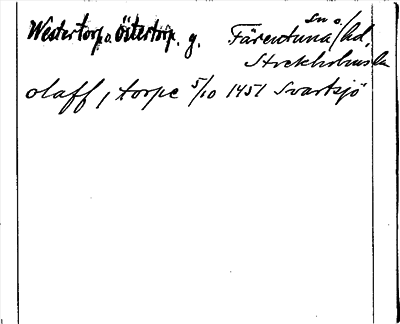 Westertorp o. Östertorp. g. Färentuna sn o. /hd,
Stockholms län
olaff i torpe 5/10 1451 Svartsjö